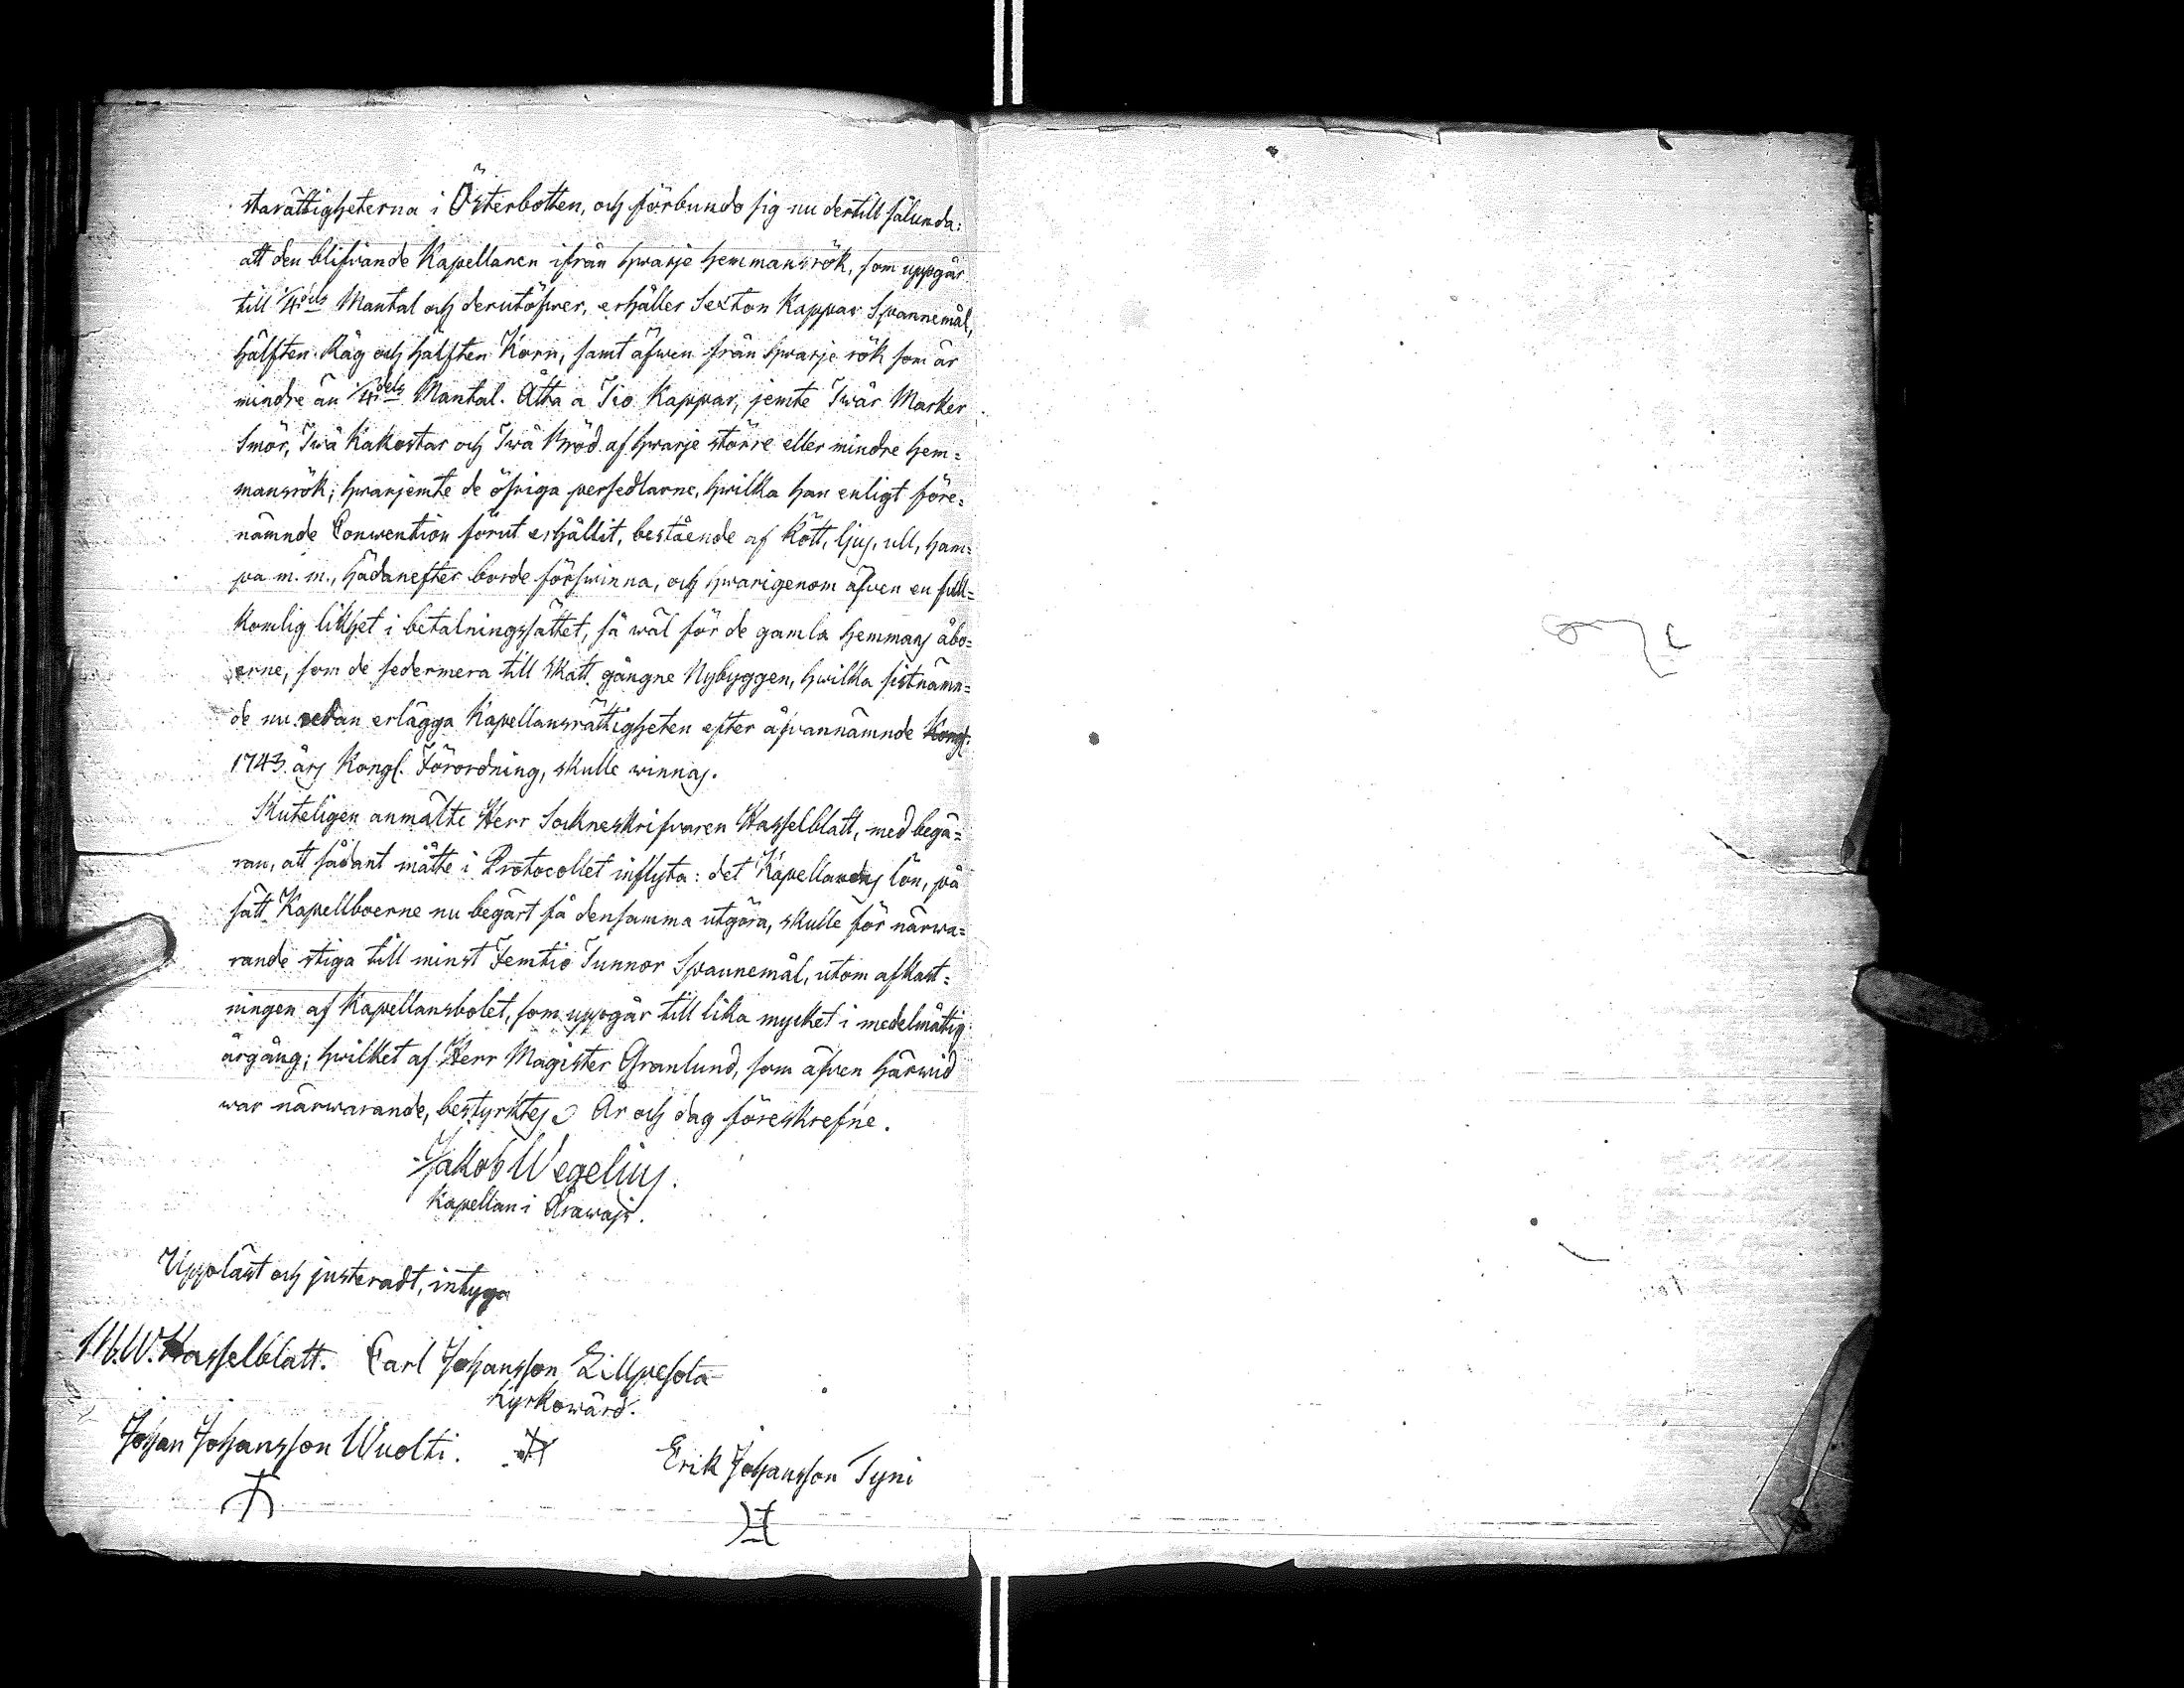 starättigheterna i Österbotten, och förbundo sig nu dertill sålunda:
att den blifvande Kapellanen ifrån hwarje hemmansrök, som uppgår
till 1/4dels Mantal och derutöfwer, erhåller Sexton Kappar Spannemål,
hälften Råg och hälften Korn, samt äfwen från hwarje rök som är
mindre än 1/4dels Mantal. Åtta a Tio Kappar, jemte Twår Marker
Smör, Twå Kakostar och Twå Bröd af hwarje större eller mindre hem=
mansrök; hwarjemte de öfriga persedlarne, hwilka han enligt före=
nämnde Conwention förut erhållit, bestående af Kött, ljus, ull, ham=
pa m. m., hädanefter borde förswinna, och hwarigenom äfwen en full=
komlig likhet i betalningssättet, så wäl för de gamla hemmans åbo=
erne, som de sedermera till Skatt gångne Nybyggen, hwilka sistnämn=
de nu redan erlägga Kapellansrättigheten efter åfvannämnde Kongl.
1743 års Kongl. Förordning, skulle winnas.
Sluteligen anmälte Herr Sockneskrifvaren Hasselblatt, med begä=
ran, att sådant måtte i Protocollet inflyta: det Kapellanens lön, på
sätt Kapellboerne nu begärt få densamma utgöra, skulle för närwa=
rande stiga till minst Femtio Tunnor Spannemål, utom afkast=
ningen af Kapellansbolet, som uppgår till lika mycket i medelmåttig
årgång; hwilket af Herr Magister Granlund, som äfven härwid
war närwarande, bestyrktes. År och dag föreskrefne.
Jakob Wegelius.
Kapellan i
Uppläst och justeradt, intyga
W. Hasselblatt. Carl Johansson Lillpesola
Kyrkowärd.
Johan Johansson Wuolti.
Erik Johansson Tyni